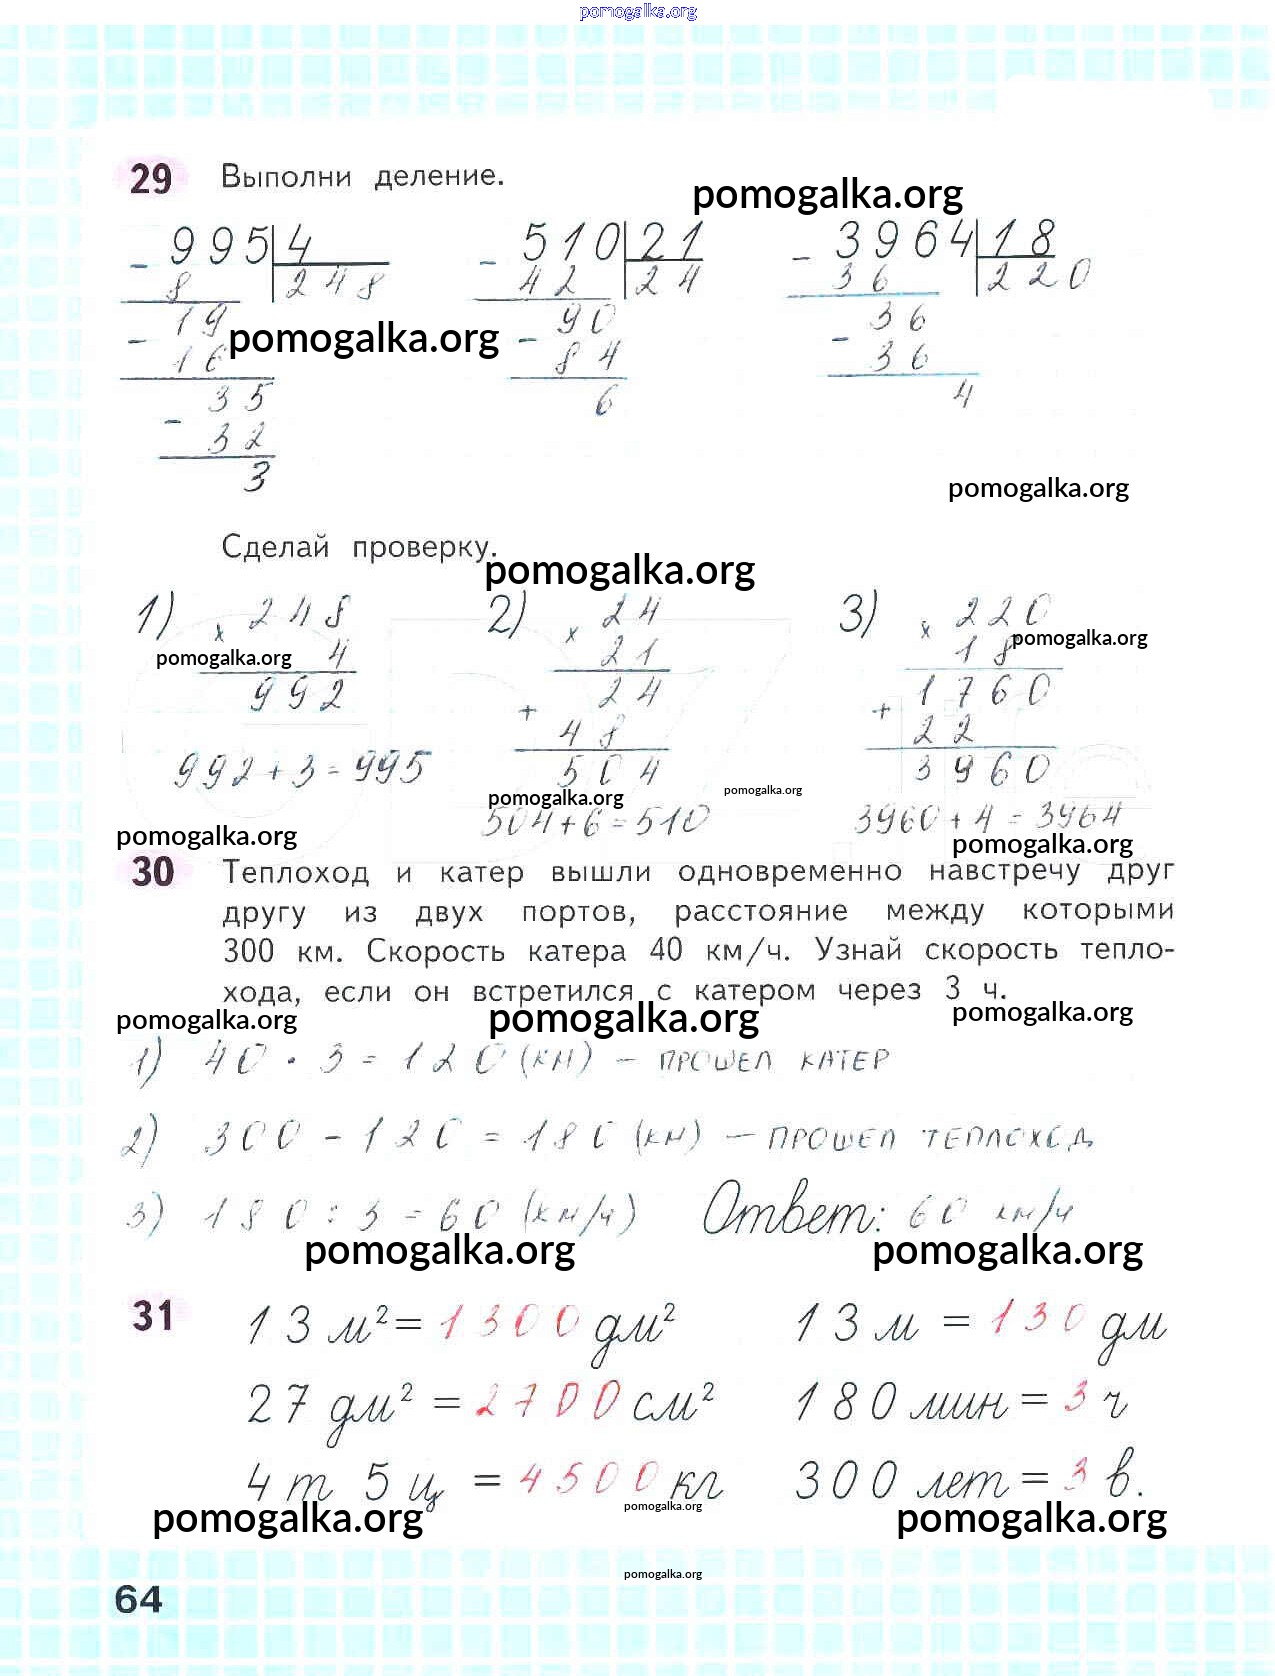 pomogalka.org
29 Выполни деление.
pomogalka.org
- 995 4 - 510 21 - 3964 18
8 248 42 24 36 220
- 19 - 90 - 36
pomogalka.org
16 84 36
35 6 4
- 32
3
pomogalka.org
Сделай проверку.
pomogalka.org
1) × 248 2) × 24 3) × 220
pomogalka.org
4 21 18
pomogalka.org
992 + 24 + 1760
48 22
992+3=995 504 3960
pomogalka.org
pomogalka.org
504+6=510 3960+4=3964
pomogalka.org
pomogalka.org
30 Теплоход и катер вышли одновременно навстречу друг
другу из двух портов, расстояние между которыми
300 км. Скорость катера 40 км/ч. Узнай скорость тепло-
хода, если он встретился с катером через 3 ч.
pomogalka.org
pomogalka.org
pomogalka.org
1) 40 · 3 = 120 (км) – ПРОШЕЛ КАТЕР
2) 300 – 120 = 180 (км) – ПРОШЕЛ ТЕПЛОХОД
3) 180 : 3 = 60 (км/ч) Ответ: 60 км/ч
pomogalka.org
pomogalka.org
31 13 м² = 1300 дм² 13 м = 130 дм
27 дм² = 2700 см² 180 мин = 3 ч
4 т 5 ц = 4500 кг 300 лет = 3 в.
pomogalka.org
pomogalka.org
pomogalka.org
pomogalka.org
64